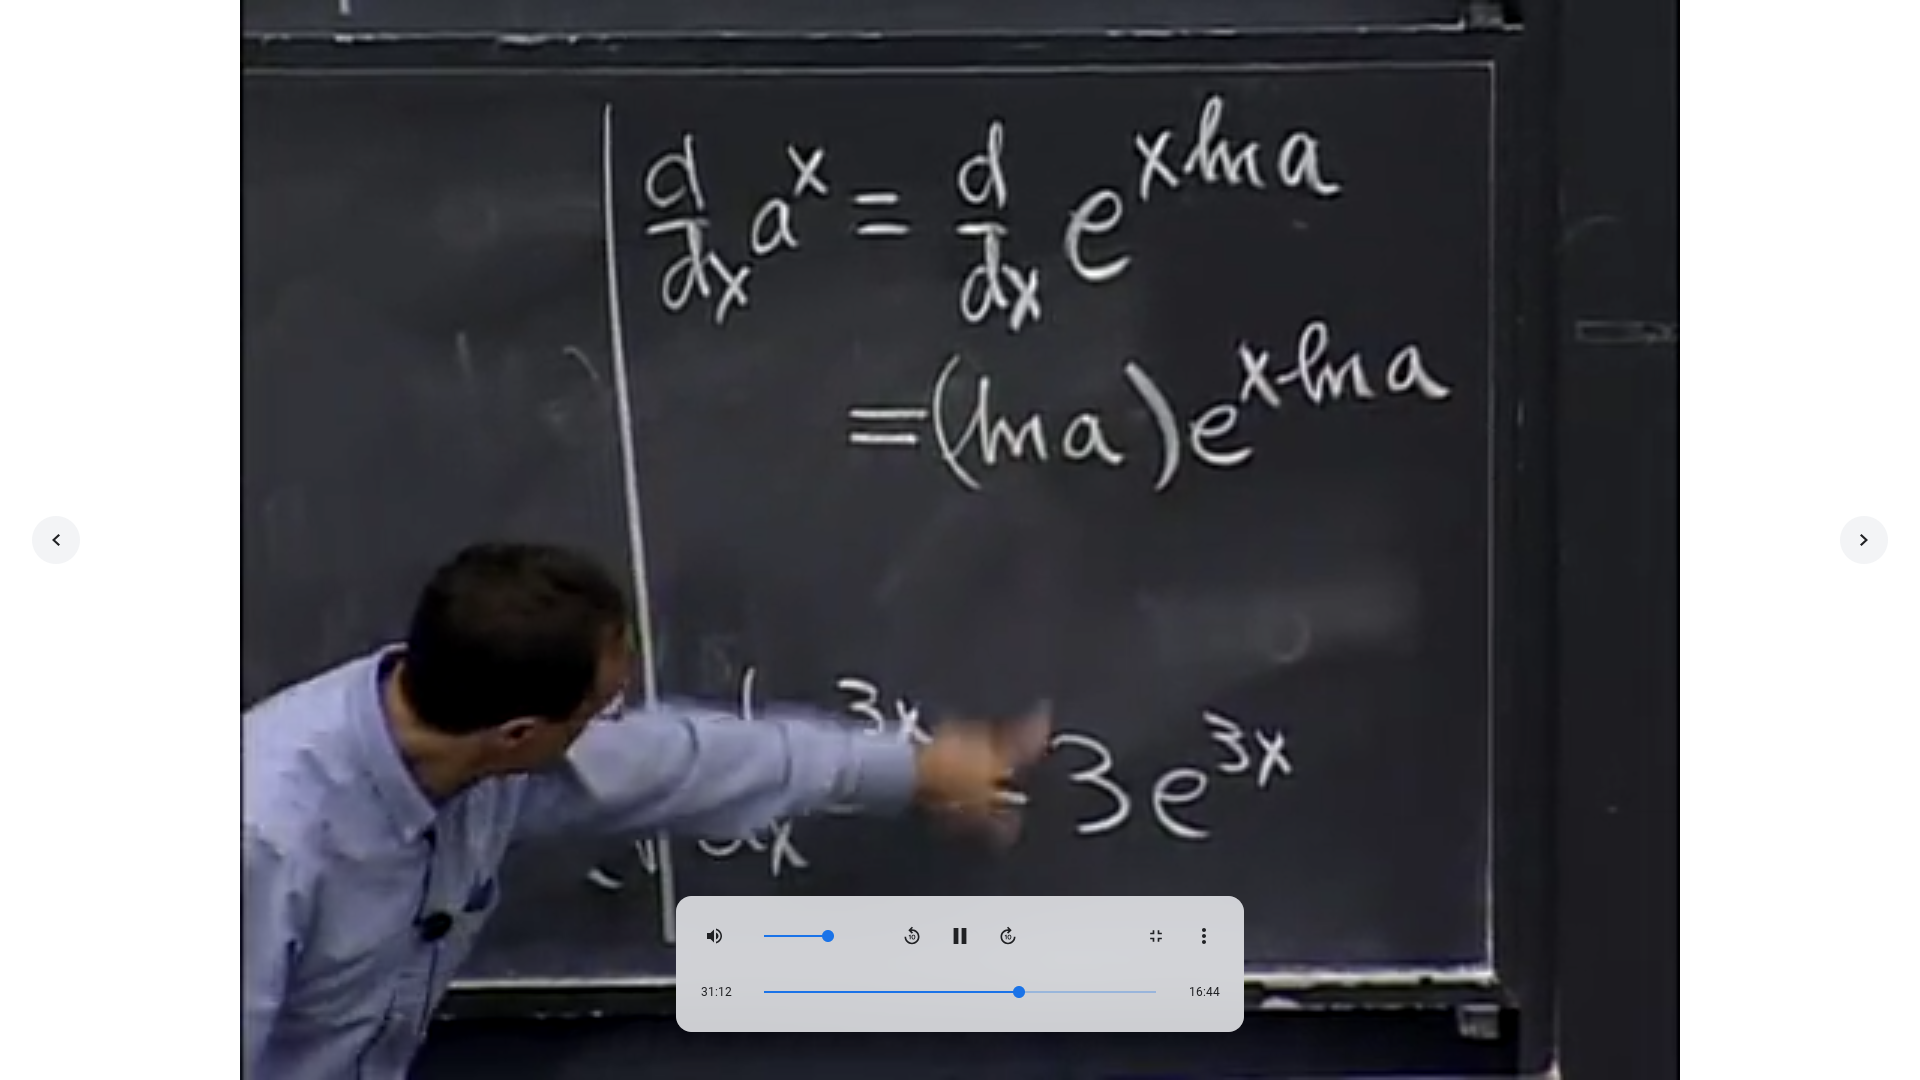 d/dx a^x = d/dx e^{x ln a}
= (ln a) e^{x ln a}
3x = 3e^{3x}
dx
10
10
31:12
16:44